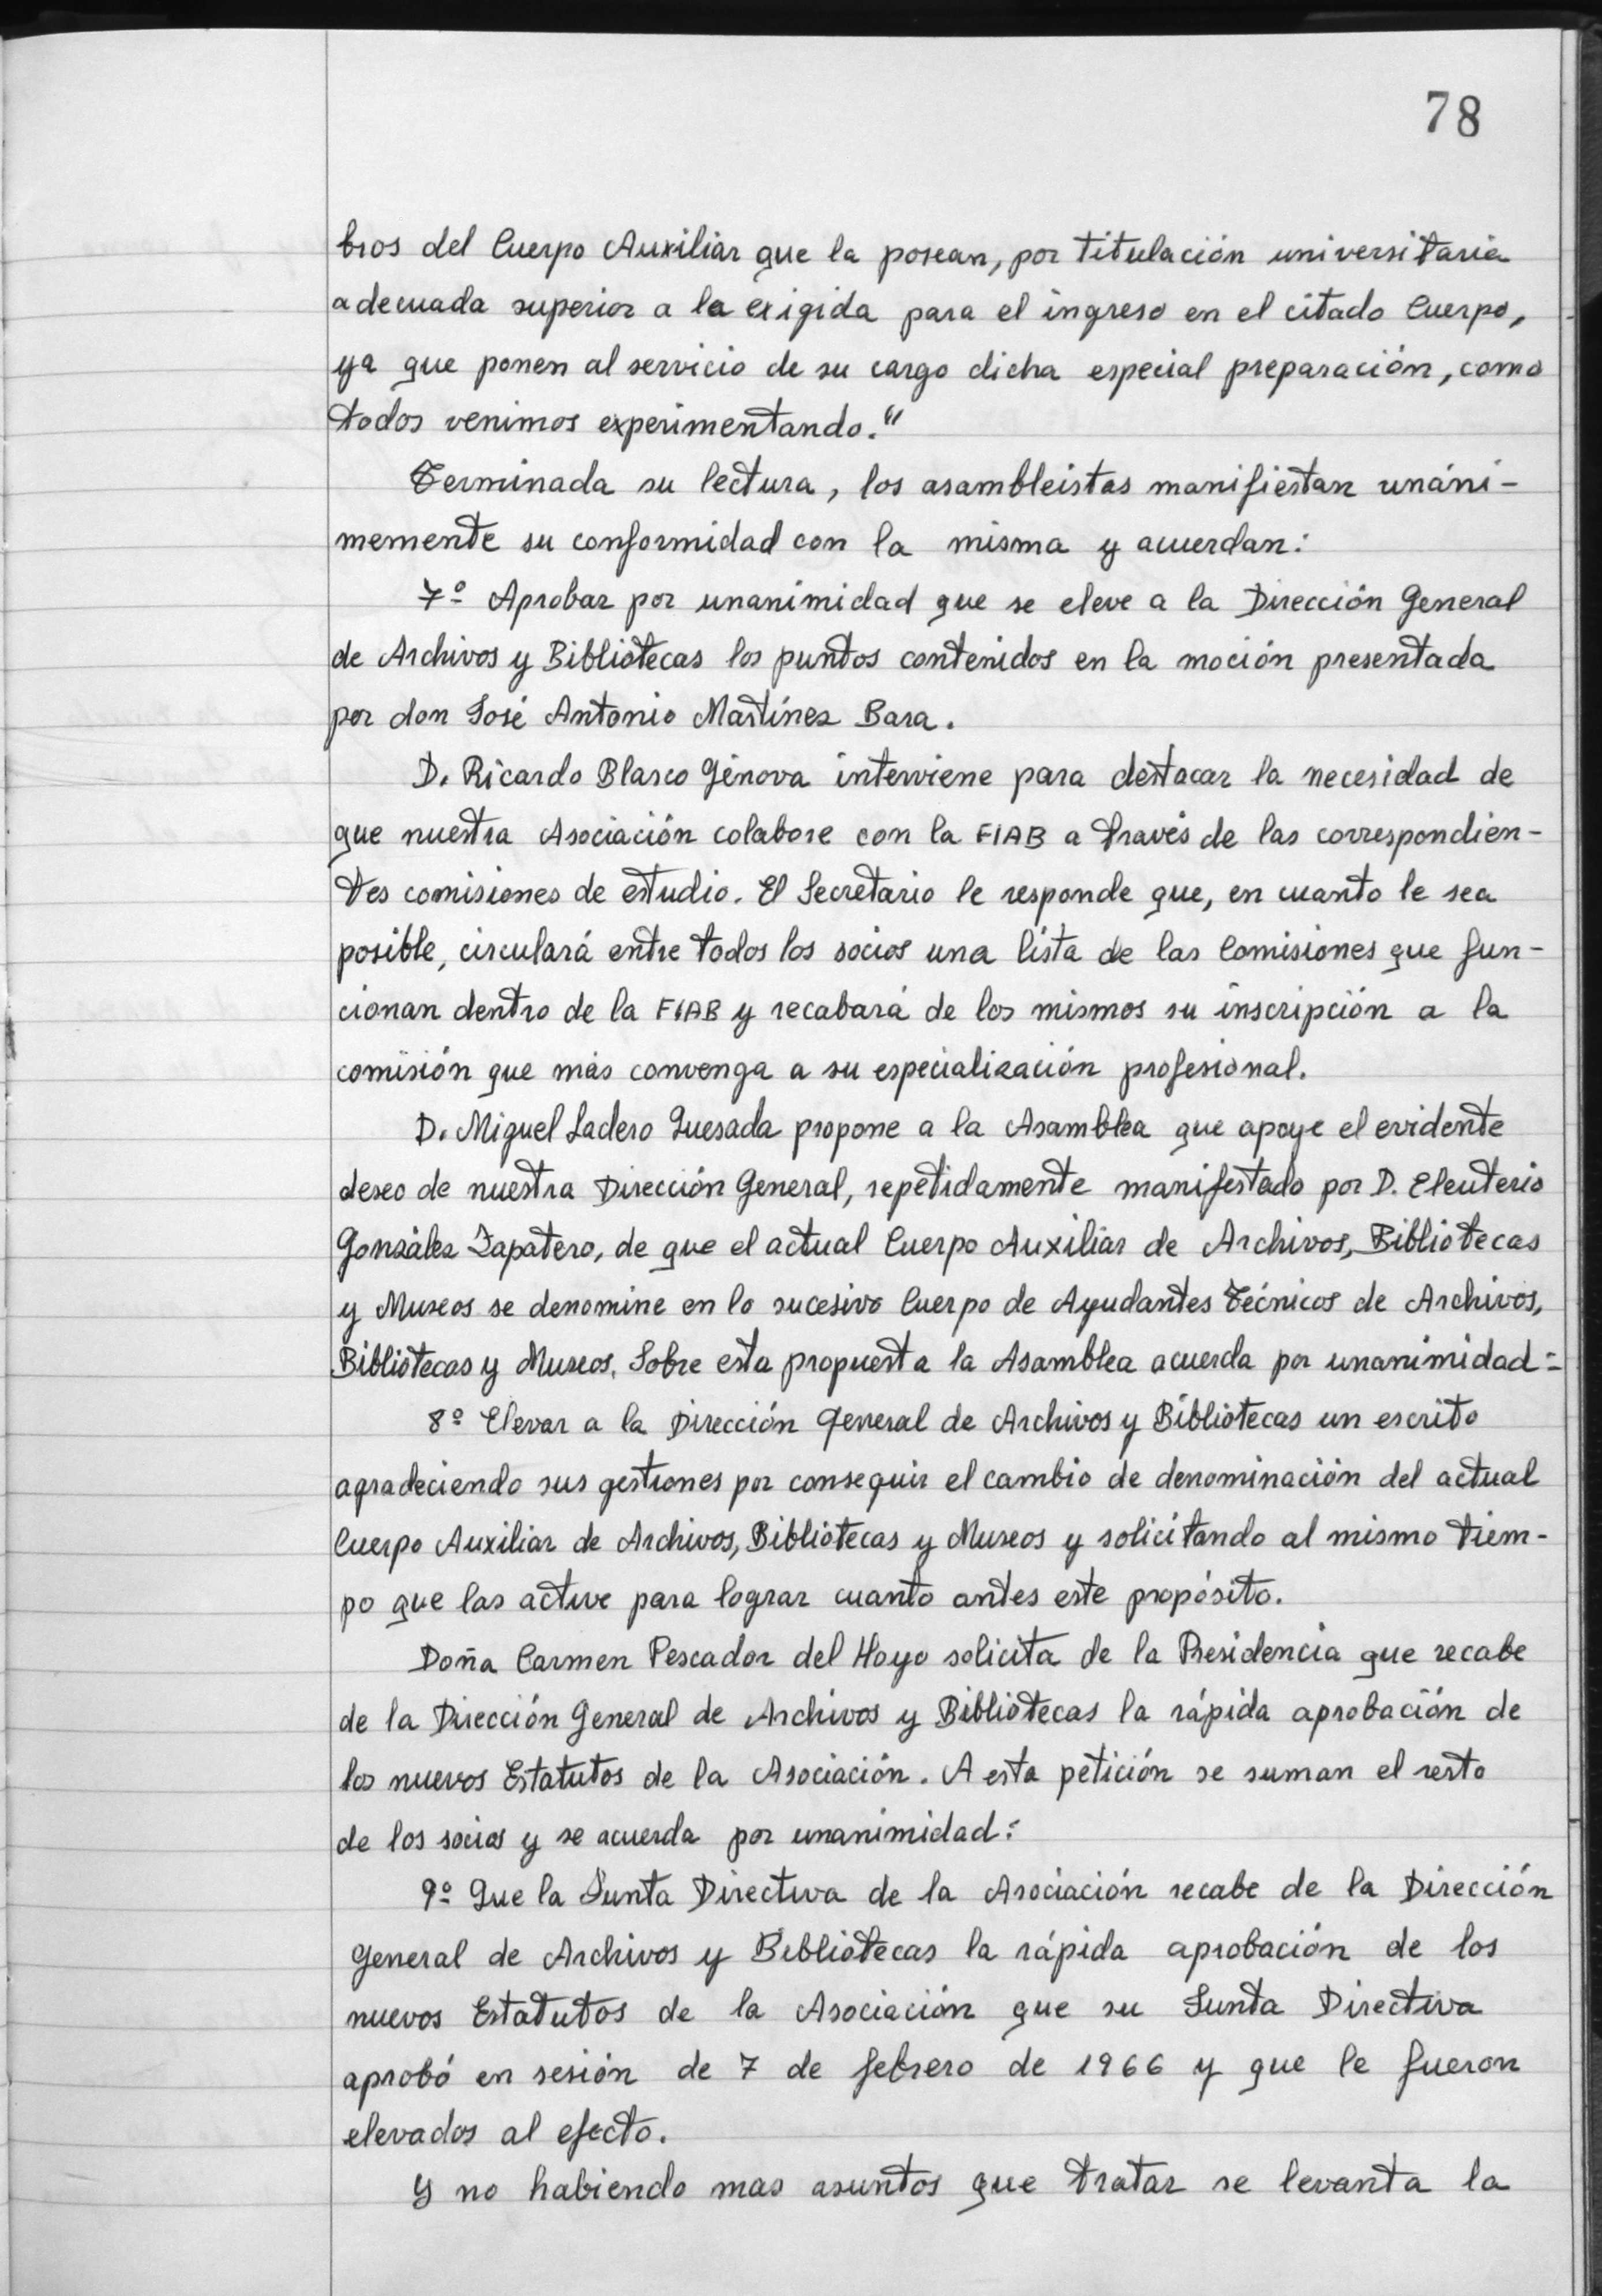 78
bros del Cuerpo Auxiliar que la posean, por titulación universitaria
adecuada superior a la exigida para el ingreso en el citado Cuerpo,
ya que ponen al servicio de su cargo dicha especial preparación, como
todos venimos experimentando."
Terminada su lectura, los asambleistas manifiestan unáni-
memente su conformidad con la misma y acuerdan:
7º Aprobar por unanimidad que se eleve a la Dirección General
de Archivos y Bibliotecas los puntos contenidos en la moción presentada
por don José Antonio Martínez Bara.
D. Ricardo Blasco Génova interviene para destacar la necesidad de
que nuestra Asociación colabore con la FIAB a través de las correspondien-
tes comisiones de estudio. El Secretario le responde que, en cuanto le sea
posible, circulará entre todos los socios una lista de las Comisiones que fun-
cionan dentro de la FIAB y recabará de los mismos su inscripción a la
comisión que más convenga a su especialización profesional.
D. Miguel Ladero Quesada propone a la Asamblea que apoye el evidente
deseo de nuestra Dirección General, repetidamente manifestado por D. Eleuterio
González Zapatero, de que el actual Cuerpo Auxiliar de Archivos, Bibliotecas
y Museos se denomine en lo sucesivo Cuerpo de Ayudantes Técnicos de Archivos,
Bibliotecas y Museos. Sobre esta propuesta la Asamblea acuerda por unanimidad:
8º Elevar a la Dirección General de Archivos y Bibliotecas un escrito
agradeciendo sus gestiones por conseguir el cambio de denominación del actual
Cuerpo Auxiliar de Archivos, Bibliotecas y Museos y solicitando al mismo tiem-
po que las active para lograr cuanto antes este propósito.
Doña Carmen Pescador del Hoyo solicita de la Presidencia que recabe
de la Dirección General de Archivos y Bibliotecas la rápida aprobación de
los nuevos Estatutos de la Asociación. A esta petición se suman el resto
de los socios y se acuerda por unanimidad:
9º Que la Junta Directiva de la Asociación recabe de la Dirección
General de Archivos y Bibliotecas la rápida aprobación de los
nuevos Estatutos de la Asociación que su Junta Directiva
aprobó en sesión de 7 de febrero de 1966 y que le fueron
elevados al efecto.
Y no habiendo mas asuntos que tratar se levanta la